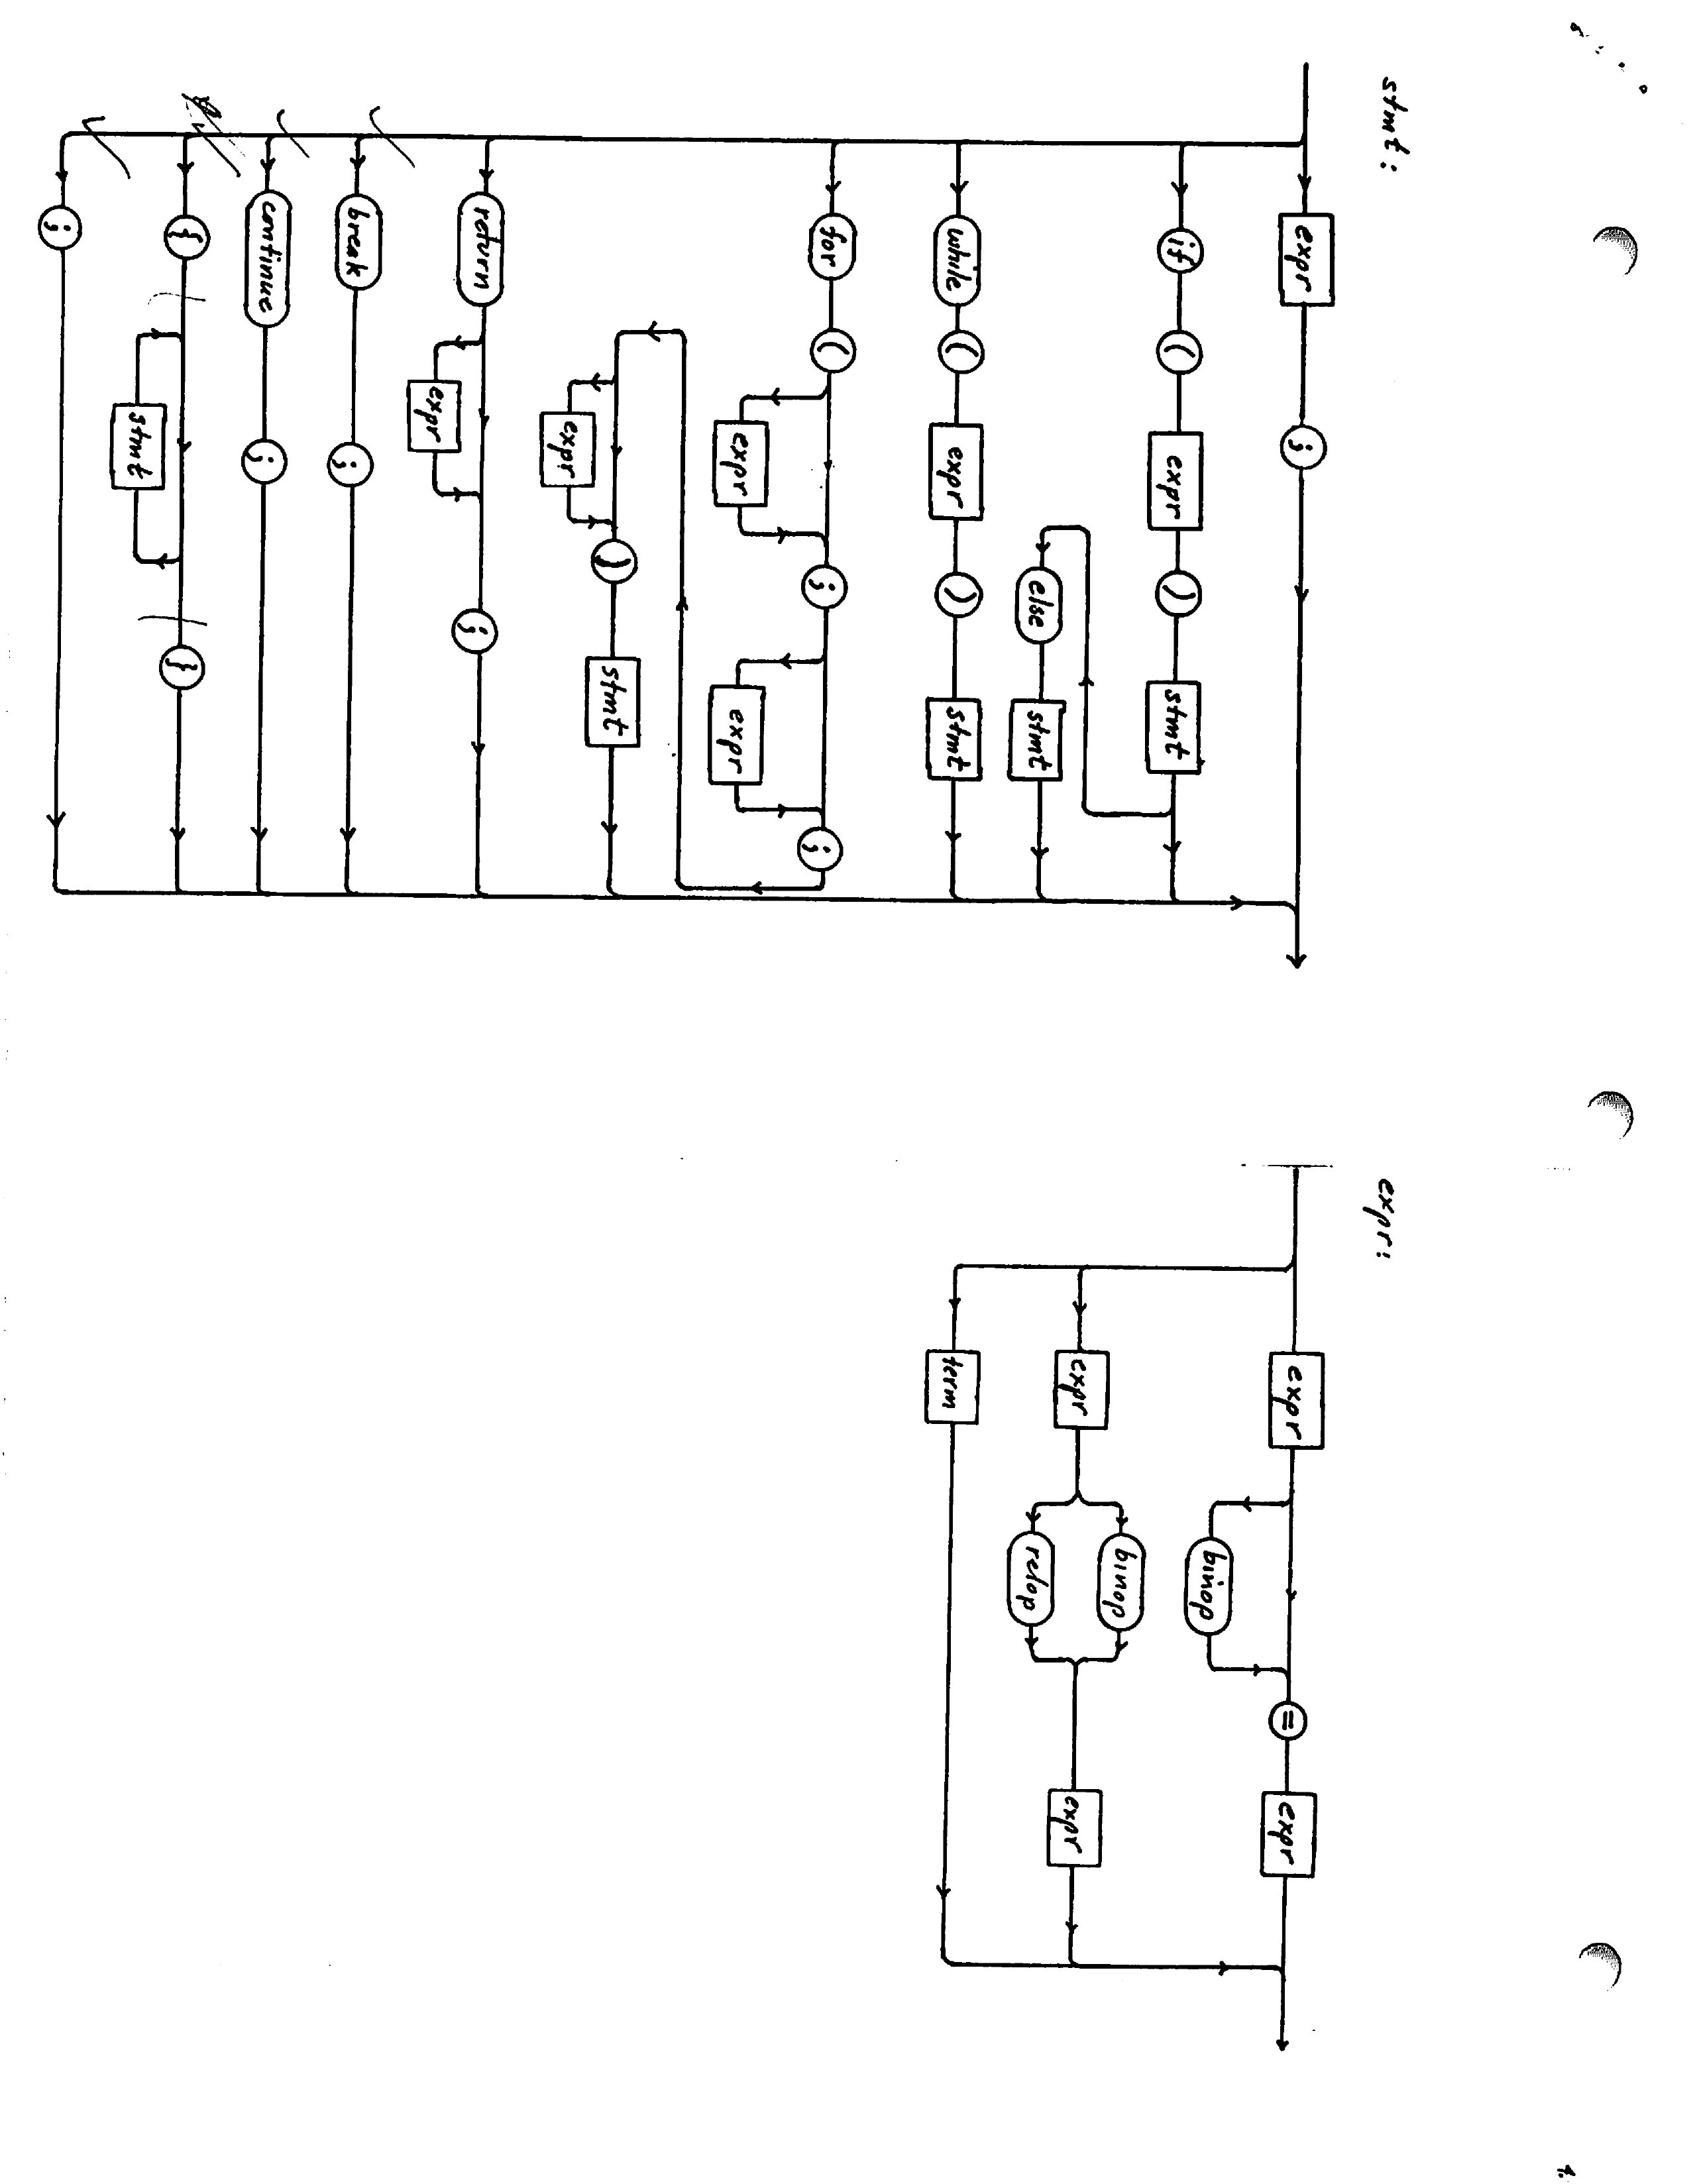 stmt:
expr ;
if ( expr ) stmt
else stmt
while ( expr ) stmt
for ( expr ; expr ;
expr ) stmt
return expr ;
break ;
continue ;
{ stmt }
;
expr:
expr binop = expr
expr binop expr
relop
term